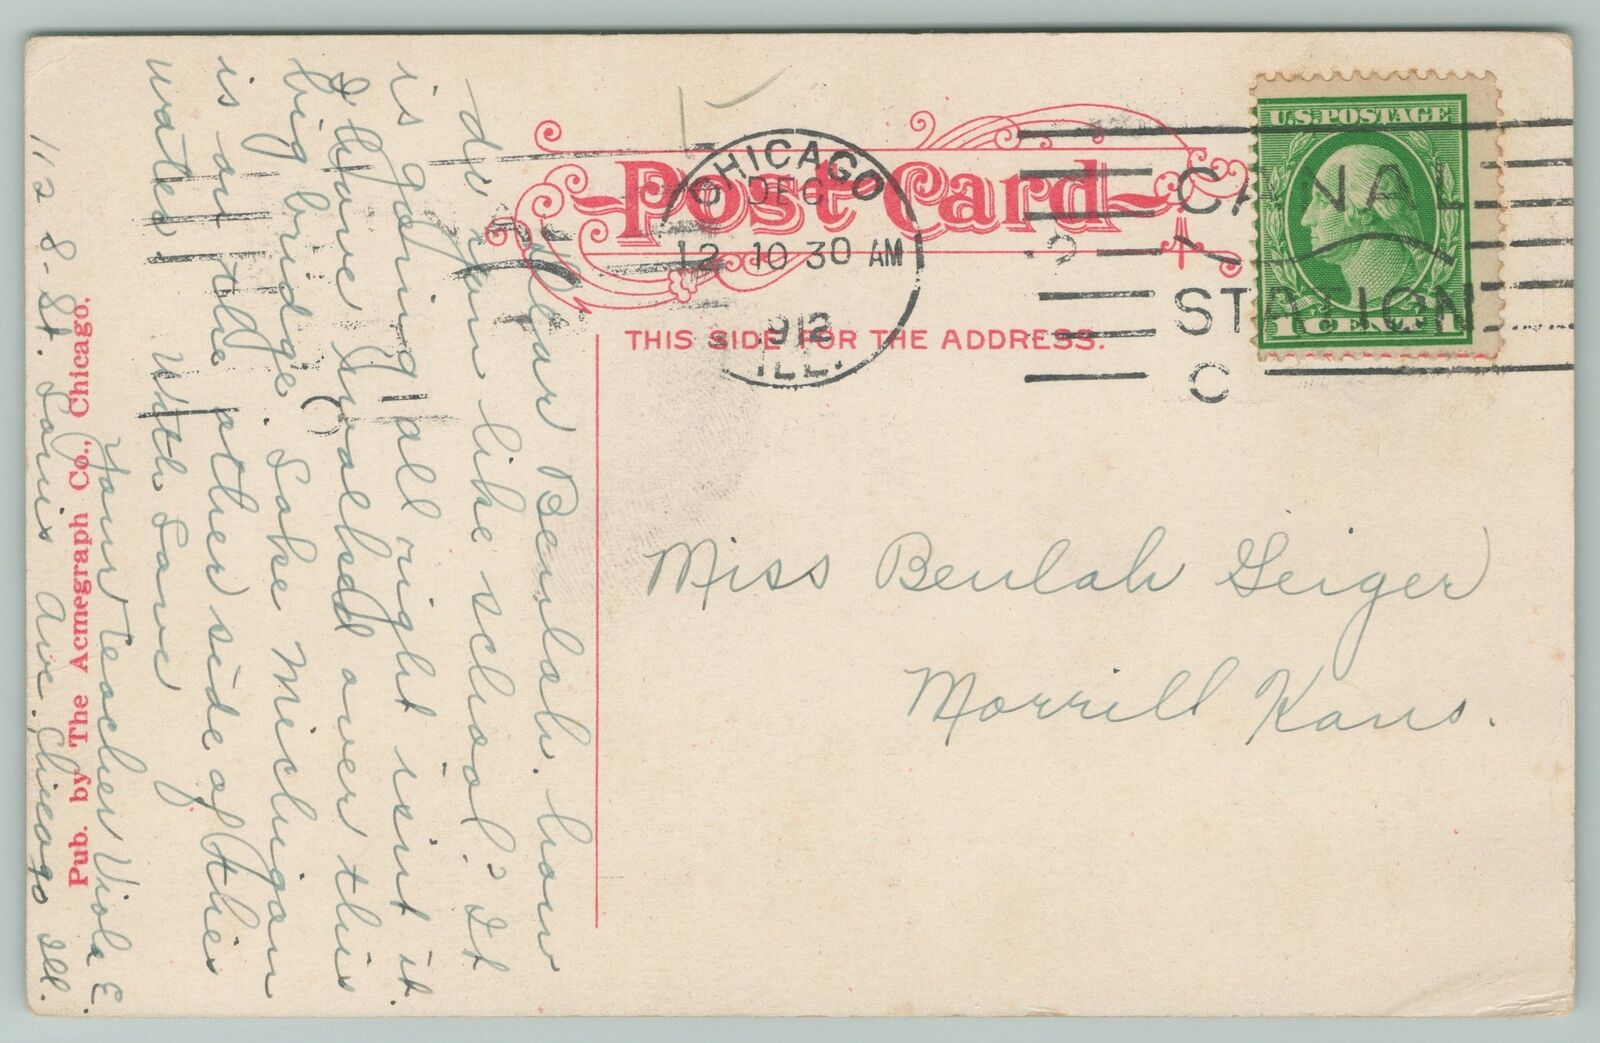 Post Card
THIS SIDE FOR THE ADDRESS.
CHICAGO
DEC
12 10 30 AM
1912
ILL.
CANAL
STATION
C
U.S. POSTAGE
1 CENT 1
Miss Beulah Geiger
Morrill Kans.
Dear Beulah. how
do you like school? It
is going all right isn't it.
I have walked over this
big bridge. Lake Michigan
is on the other side of this
water. With Love
Your Teacher Viola E.
112 8- St. Louis Ave. Chicago Ill.
Pub. by The Acmegraph Co., Chicago.